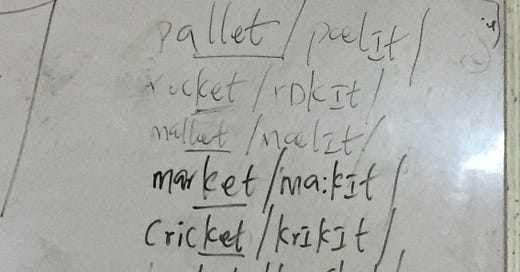 pallet /pælIt/
rocket /rɒkIt/
mallet /mælIt/
market /ma:kIt/
Cricket /krIkIt/